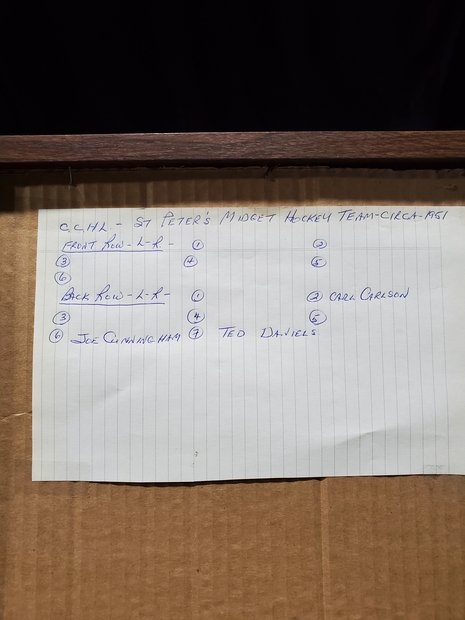 C.C.H.L - ST PETER'S MIDGET HOCKEY TEAM-CIRCA-1961
FRONT ROW-L-R- ① ②
③ ④ ⑤
⑥
BACK ROW-L-R- ① ② CARL CARLSON
③ ④ ⑤
⑥ JOE CUNNINGHAM ⑦ TED DANIELS